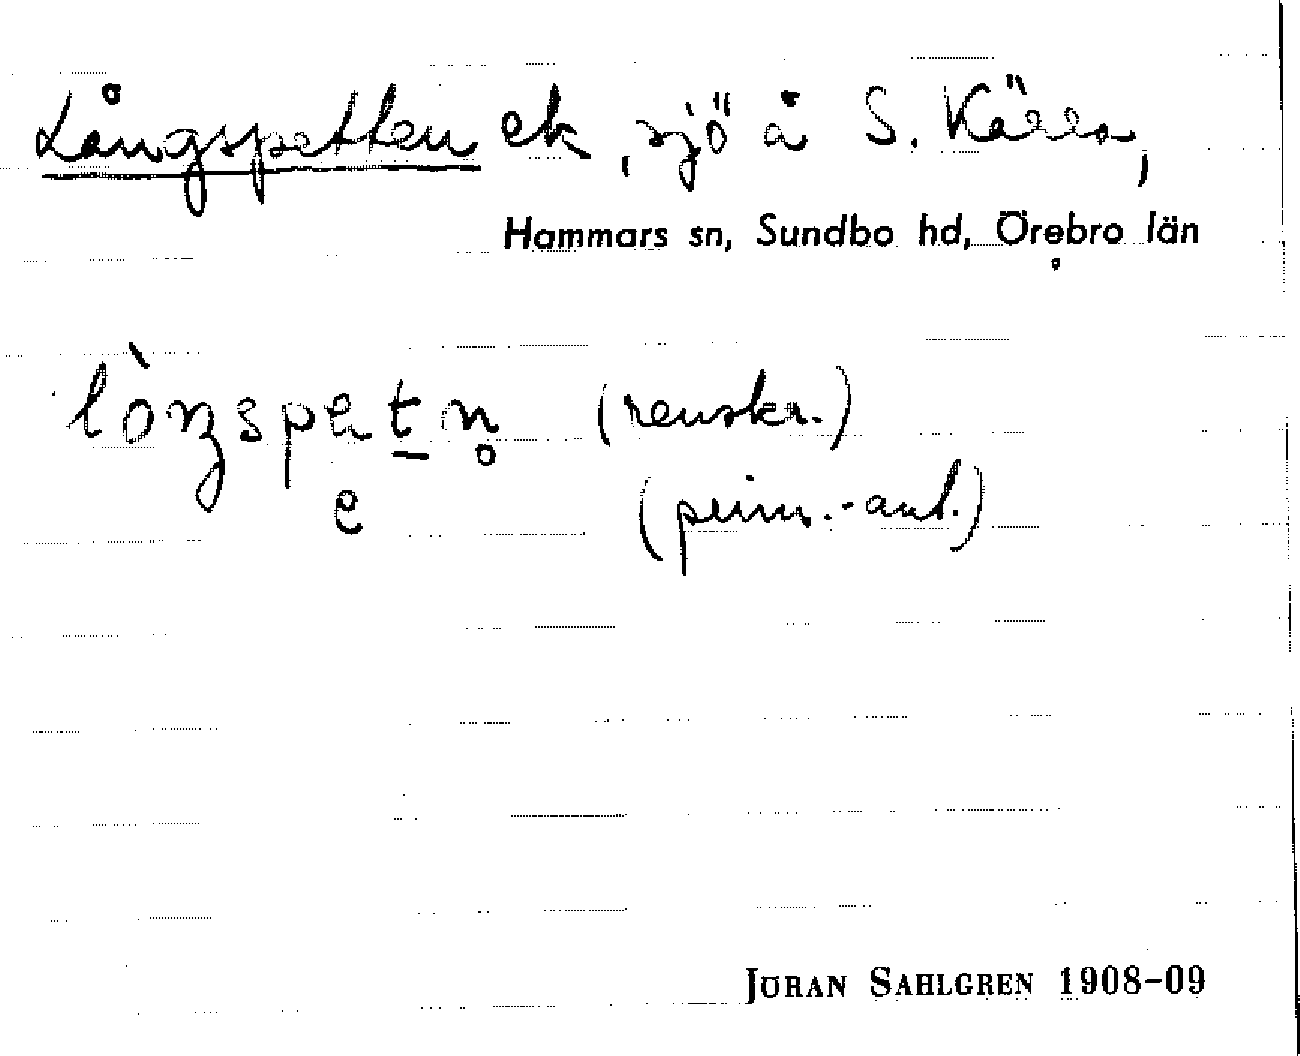 Långspetten ek, sjö å S. Kälra,
Hammars sn, Sundbo hd, Örebro län
lòŋspetn̥ (renskr.)
e (prim.-ant.)
JÖRAN SAHLGREN 1908–09